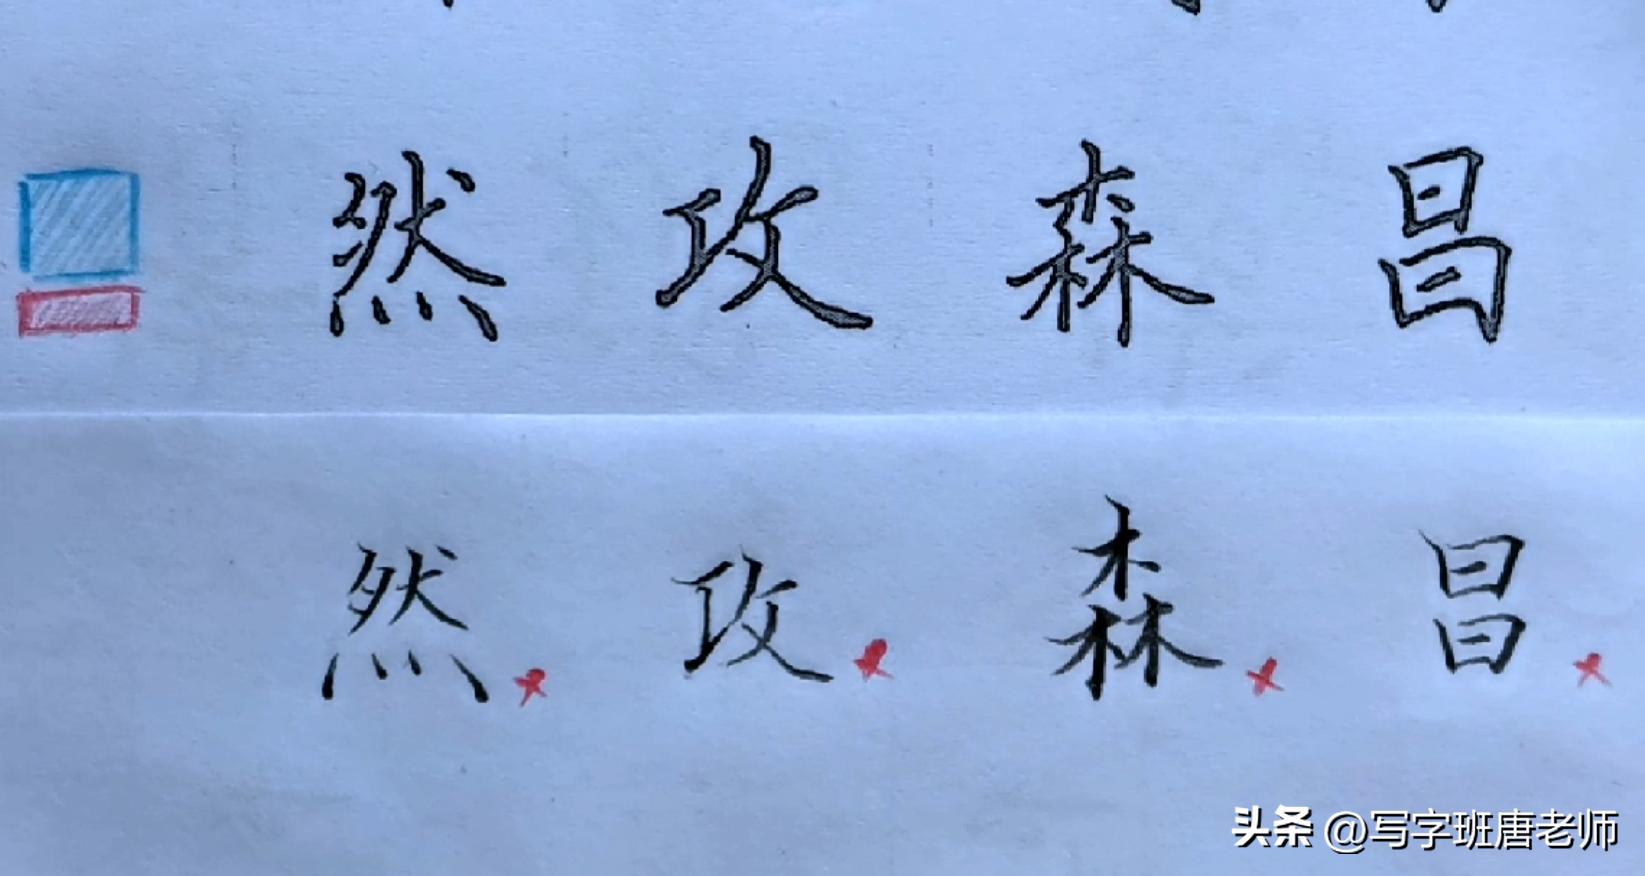 然 攻 森 昌
然 攻 森 昌
头条 @写字班唐老师